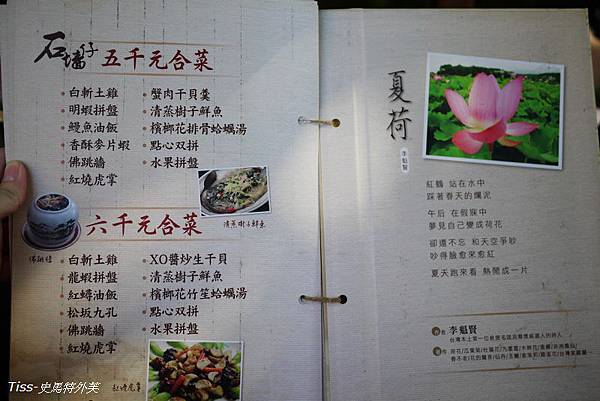 石墻仔 五千元合菜
白斬土雞
明蝦拼盤
鰻魚油飯
香酥麥片蝦
佛跳牆
紅燒虎掌
蟹肉干貝羹
清蒸樹子鮮魚
檳榔花排骨蛤蠣湯
點心双拼
水果拼盤
清蒸樹子鮮魚
佛跳牆
六千元合菜
白斬土雞
龍蝦拼盤
紅蟳油飯
松坂九孔
佛跳牆
紅燒虎掌
XO醬炒生干貝
清蒸樹子鮮魚
檳榔花竹笙蛤蠣湯
點心双拼
水果拼盤
紅燒虎掌
夏荷
李魁賢
紅鶴 站在水中
踩著春天的爛泥
午后 在假寐中
夢見自己變成荷花
卻還不忘 和天空爭吵
吵得臉愈來愈紅
夏天跑來看 熱鬧成一片
李魁賢
Tiss-史馬特外芙